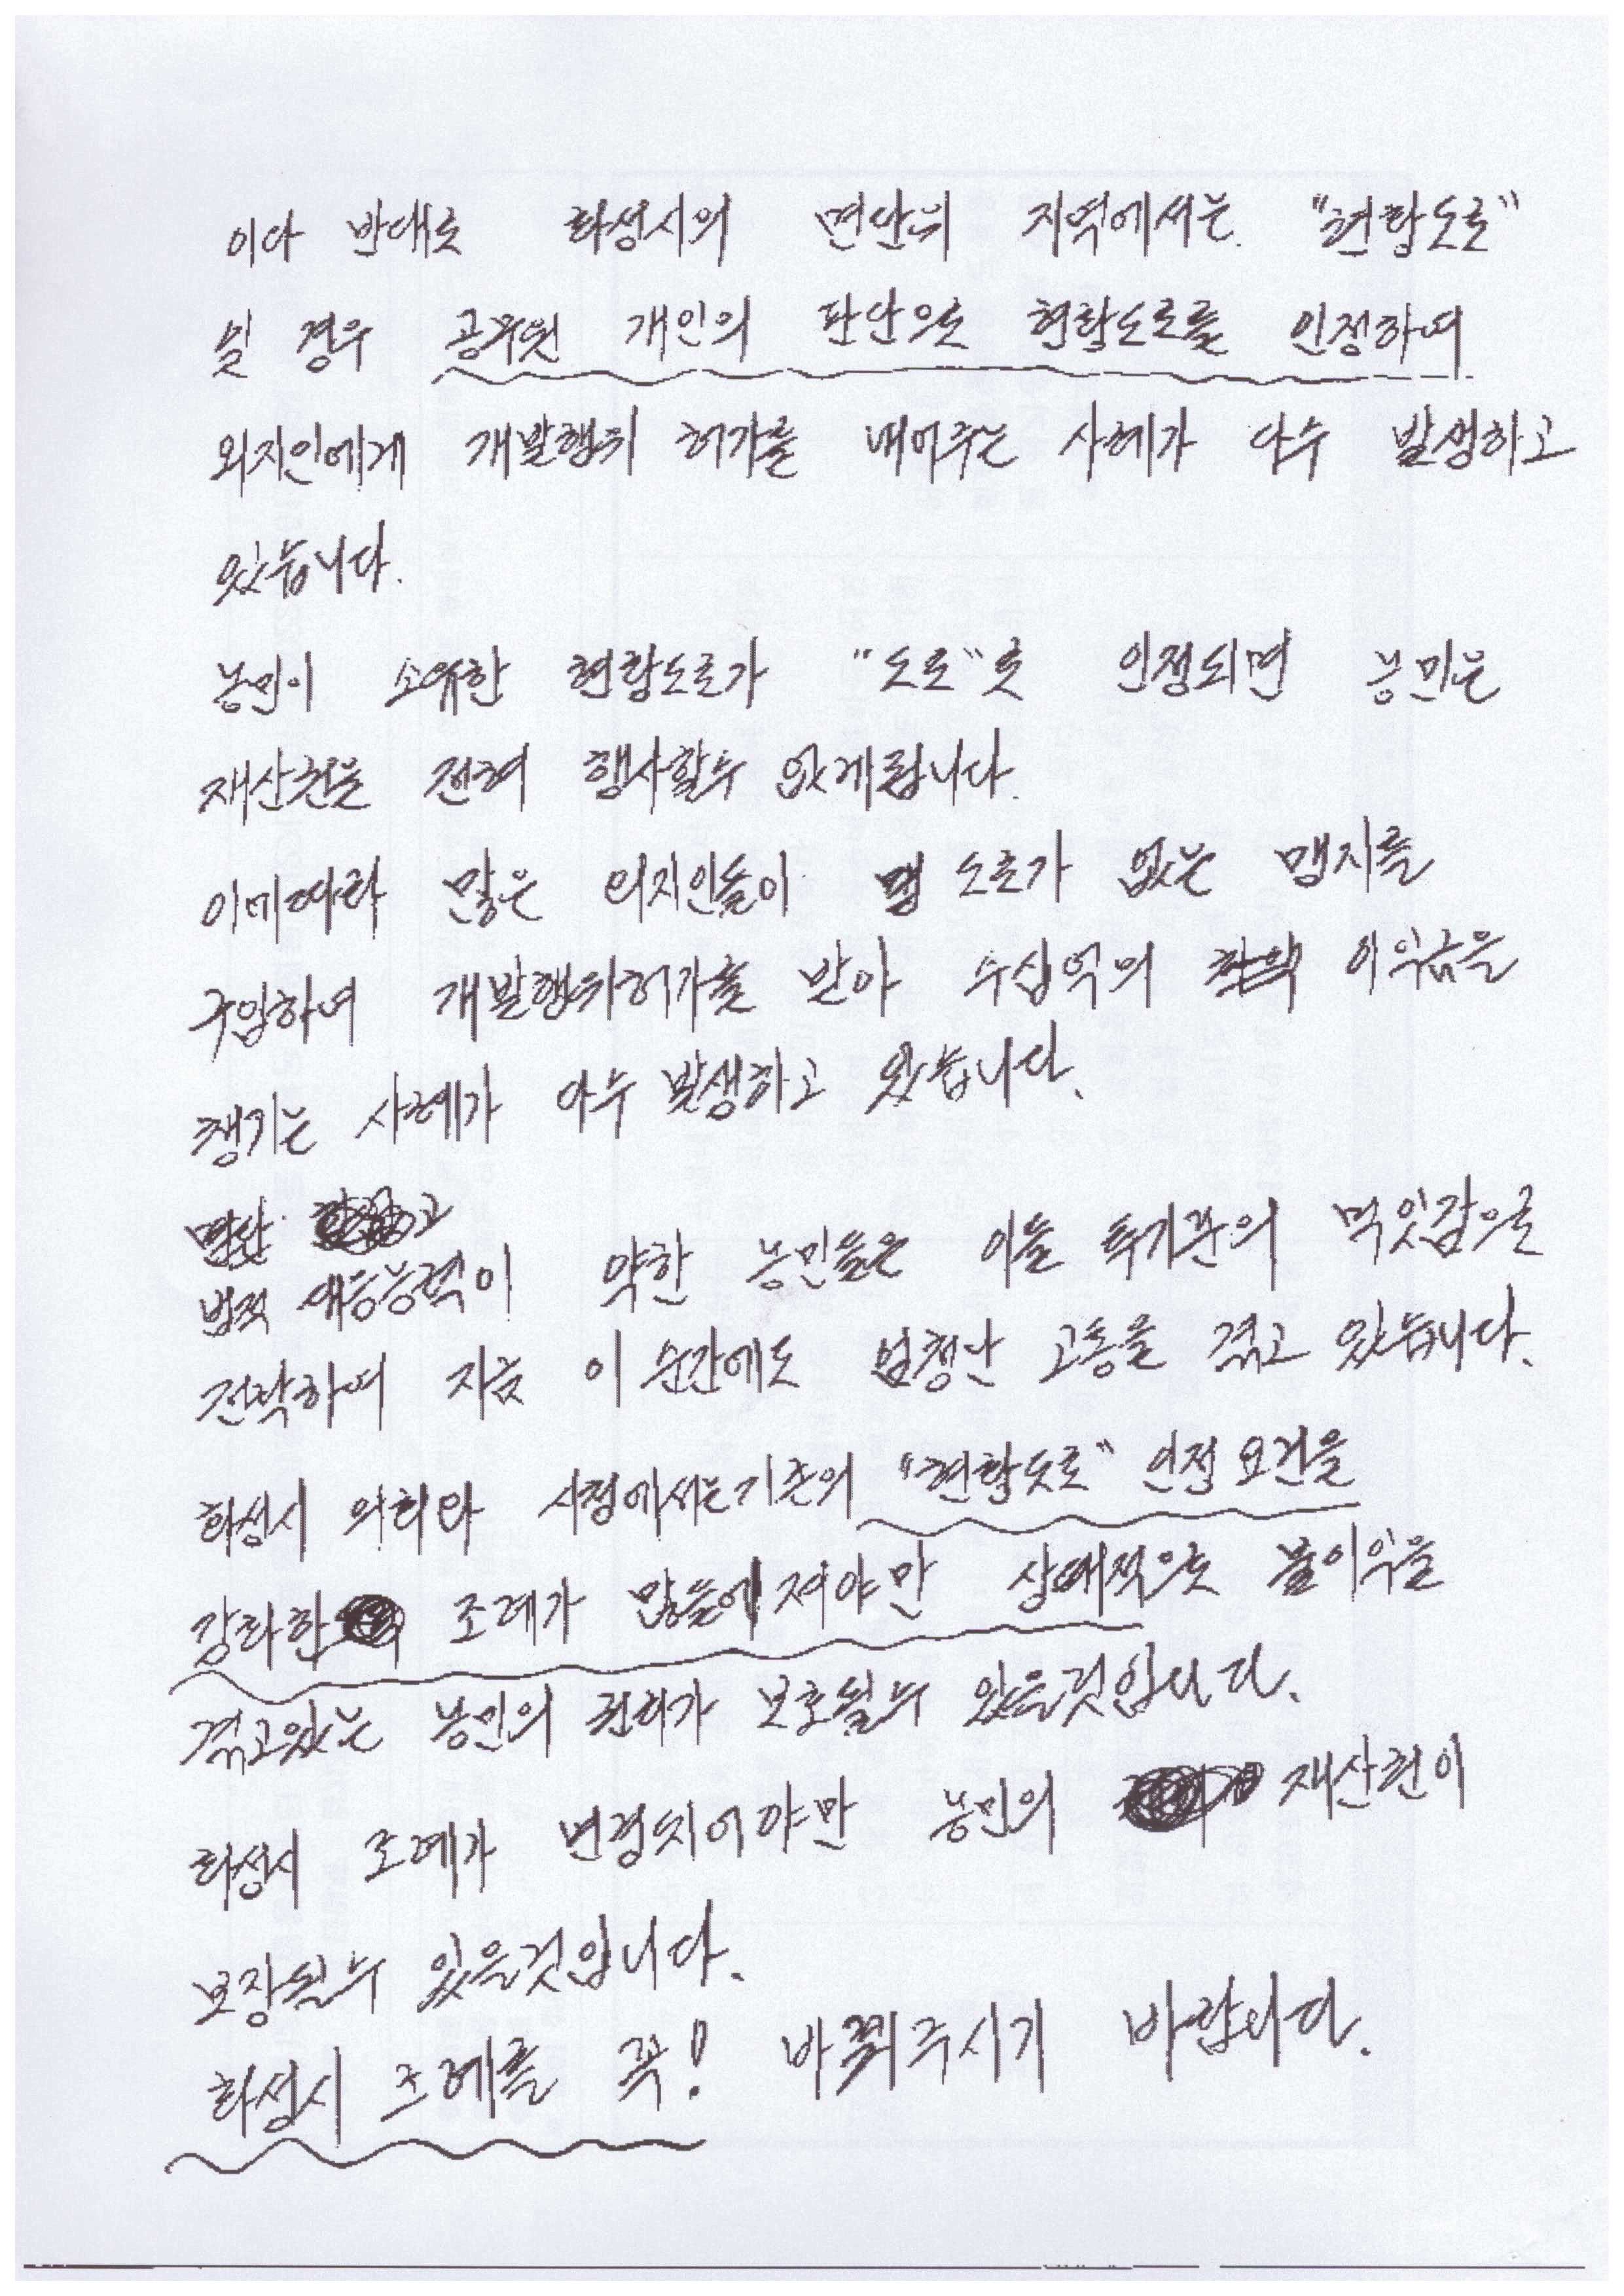 이와 반대로 화성시의 면단위 지역에서는 "현황도로"
일 경우 공무원 개인의 판단으로 현황도로를 인정하여
외지인에게 개발행위 허가를 내어주는 사례가 다수 발생하고
있습니다.
농민이 소유한 현황도로가 "도로"로 인정되면 농민은
재산권을 전혀 행사할수 없게됩니다.
이에따라 많은 외지인들이 도로가 없는 맹지를
구입하여 개발행위허가를 받아 수십억의 이익금을
챙기는 사례가 다수 발생하고 있습니다.
법적 대응능력이 약한 농민들은 이들 투기꾼의 먹잇감으로
전락하여 지금 이 순간에도 엄청난 고통을 겪고 있습니다.
화성시 의회와 시청에서는 기존의 "현황도로" 인정 요건을
강화한 조례가 만들어져야만 상대적으로 불이익을
겪고있는 농민의 권리가 보호될수 있을것입니다.
화성시 조례가 변경되어야만 농민의 재산권이
보장될수 있을것입니다.
화성시 조례를 꼭! 바꿔주시기 바랍니다.